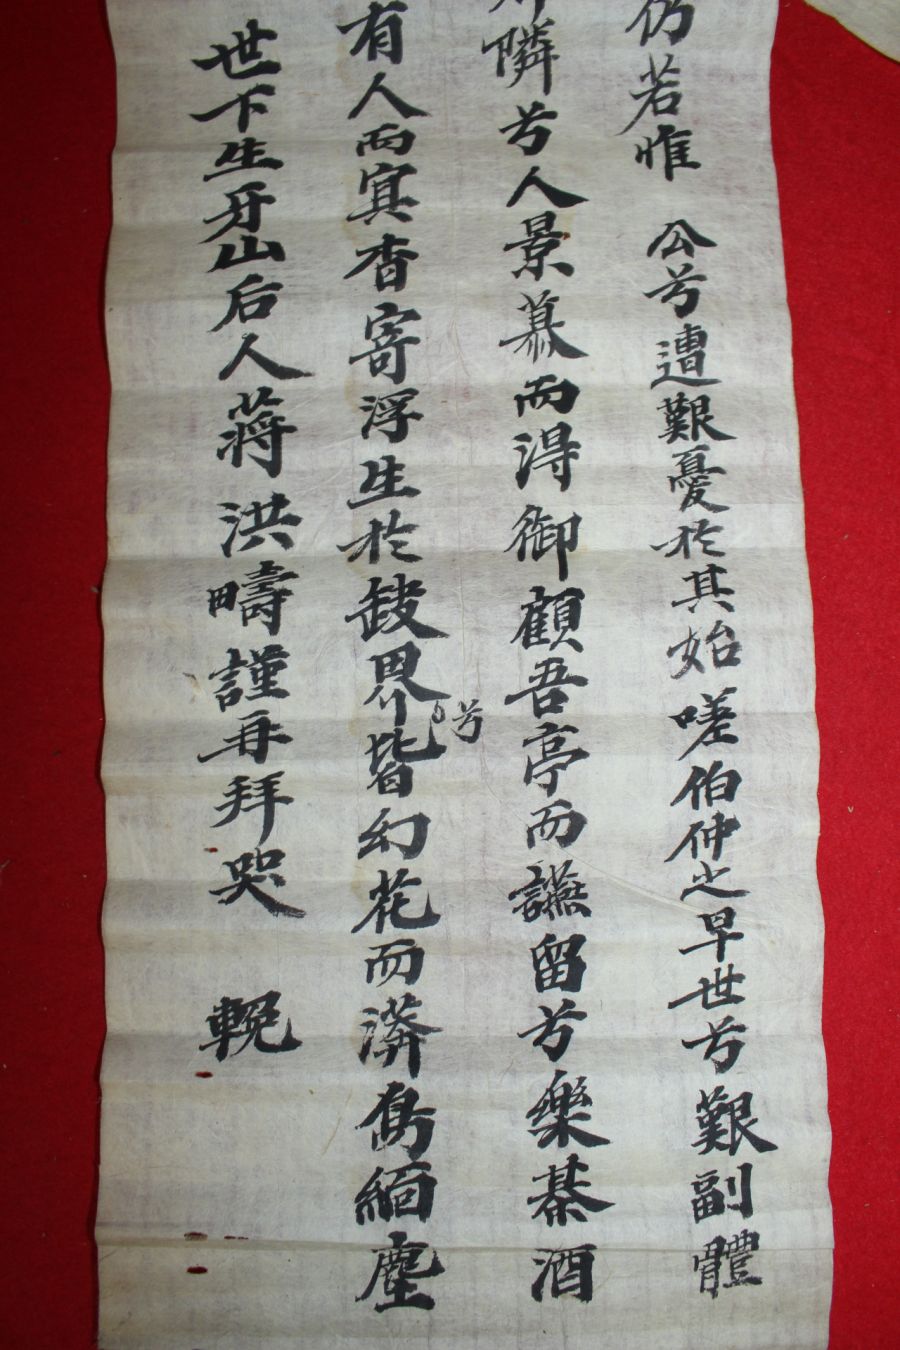 仍若惟 公兮遭艱憂於其始嗟伯仲之早世兮艱副體
隣兮人景慕而得御顧吾亭而讌留兮樂棊酒
有人而寘杳寄浮生於缺界兮皆幻花而漭緬塵
世下生牙山后人蔣洪疇謹再拜哭 輓